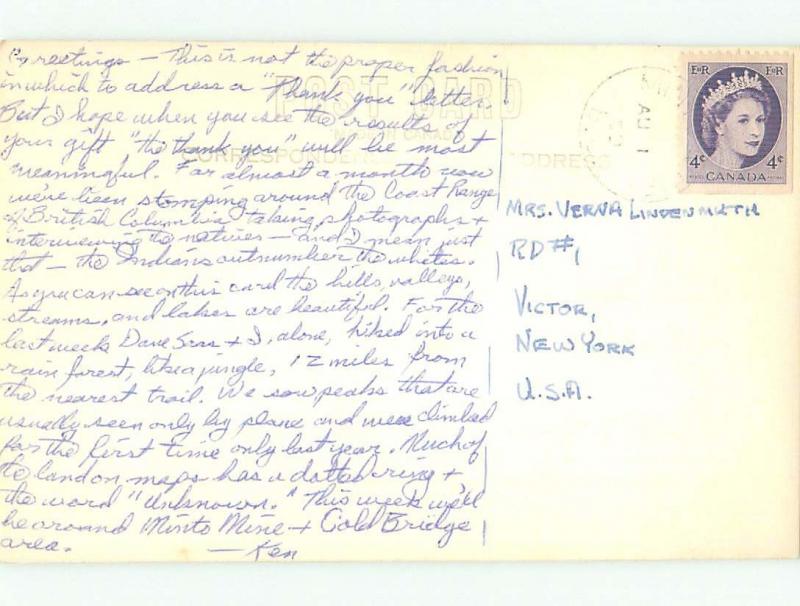 Greetings — This is not the proper fashion
in which to address a "Thank you" letter.
But I hope when you see the results of
your gift "the thank you" will be most
meaningful. For almost a month now
we've been stomping around the Coast Range
of British Columbia taking photographs +
interviewing the natives — and I mean just
that — the Indians outnumber the whites.
As you can see on this card the hills, valleys,
streams, and lakes are beautiful. For the
last week Dave + I, alone, hiked into a
rain forest, like a jungle, 12 miles from
the nearest trail. We saw peaks that are
usually seen only by plane and were climbed
for the first time only last year. Much of
the land on maps has a dotted ring +
the word "unknown." This week we'll
be around Minto Mine + Gold Bridge
area. — Ken
POST CARD
CORRESPONDENCE ADDRESS
AU 1
E II R E II R
4¢ 4¢
CANADA
MRS. VERNA LINDENMUTH
RD #1
VICTOR,
NEW YORK
U.S.A.